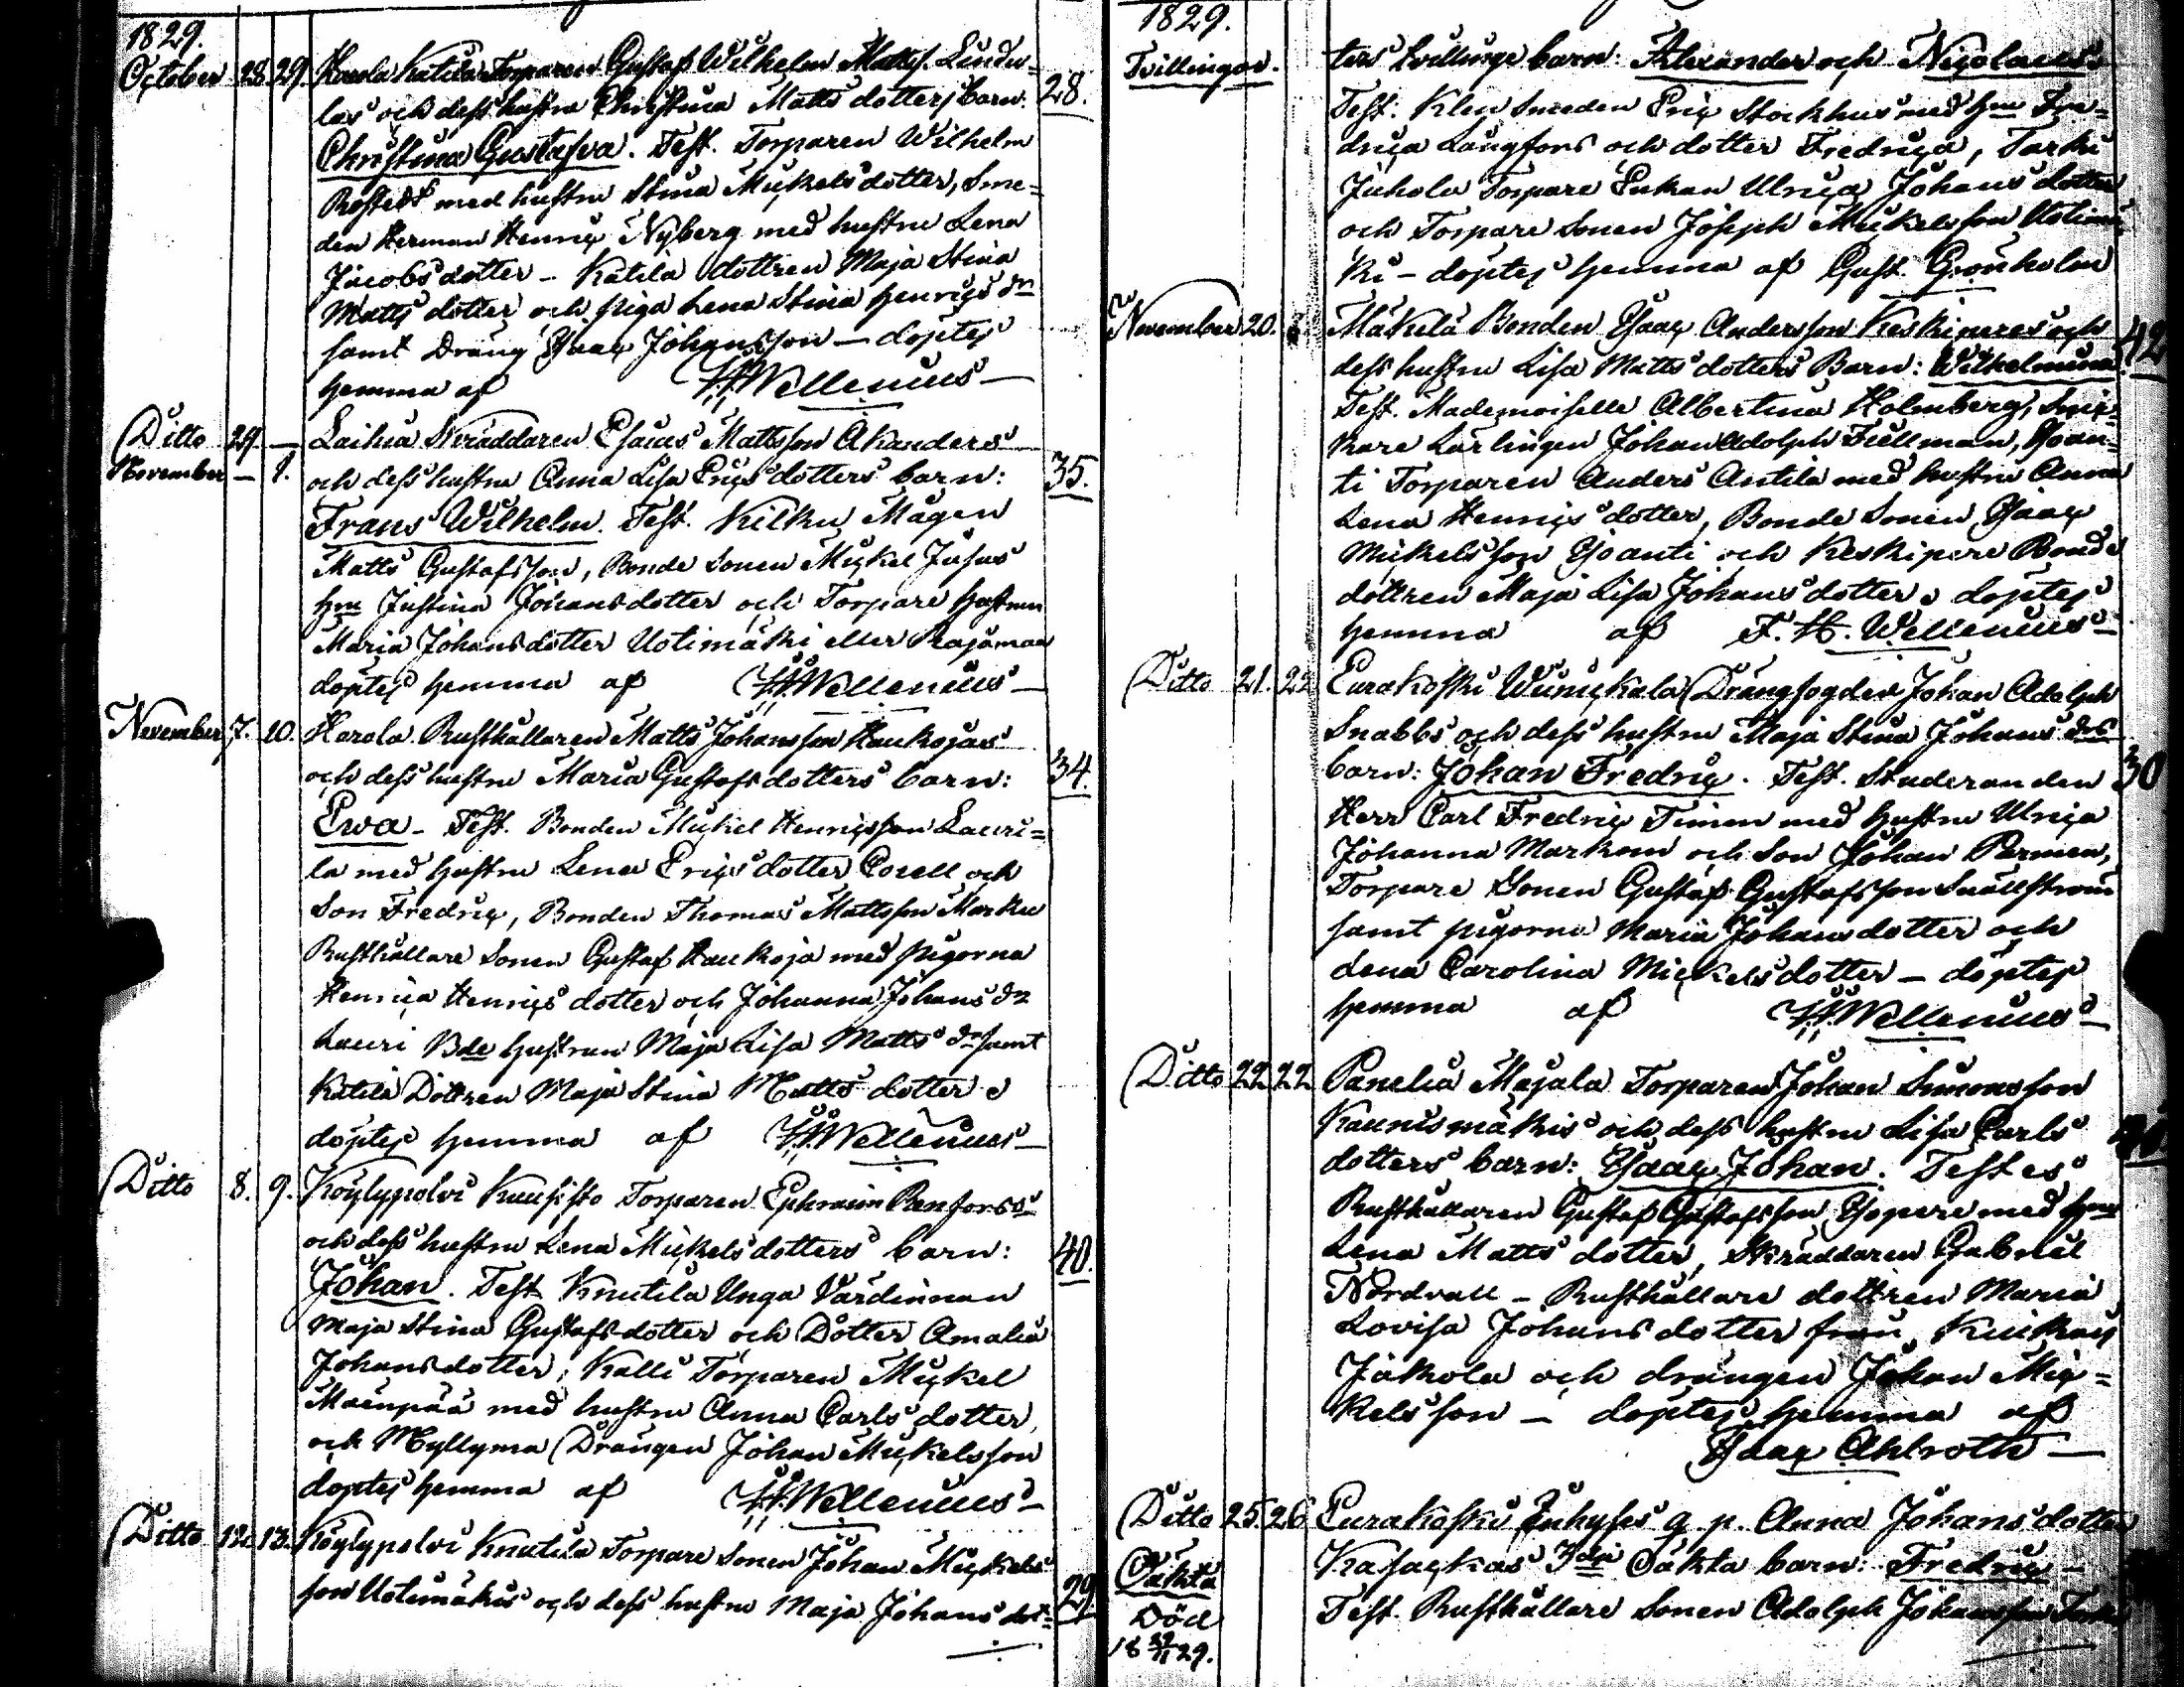 1829.
October 28. 29. Harola Katila Torparen Gustaf Wilhelm Matts. Lindu=
las och dess hustru Christina Matts dotters barn: 28.
Christina Gustafva. Test. Torparen Wilhelm
med hustru Stina Mickels dotter, Sme=
den Herman Henric Nyberg med hustru Lena
Jacobs dotter – Katila dottren Maja Stina
Matts dotter och piga Lena Stina Henrics dr
samt Dräng Isaac Johansson – döptes
hemma af FHWellenius –
Ditto 29. –
November – 1. Laihia Skräddaren Esaias Mattsson Akanders
och dess hustru Anna Lisa Erics dotters barn: 35.
Frans Wilhelm. Test. Kilku Mågen
Matts Gustafsson, Bonde Sonen Mickel Jusus
hru Justina Johansdotter och Torpare hustrun
Maria Johansdotter Uotimäki eller Rajamaa
döptes hemma af FHWellenius –
November 7. 10. Harola Rusthållaren Matts Johansson Haukojas
och dess hustru Maria Gustafsdotters barn: 34.
Ewa – Test. Bonden Mickel Henricsson Lauri=
la med hustru Lena Erics dotter Corell och
Son Fredric, Bonden Thomas Mattsson Marku
Rusthållare Sonen Gustaf Haukoja med pigorna
Henrica Henrics dotter och Johanna Johans dr
Lauri Bde hustrun Maja Lisa Matts dr samt
Katila Dottren Maja Stina Matts dotter
döptes hemma af FHWellenius –
Ditto 8. 9. Köylypolvi Kuusisto Torparen Ephraim Renfors's
och dess hustru Lena Mickels dotters barn: 40.
Johan. Test Knutila Unga Värdinnan
Maja Stina Gustafsdotter och Dotter Amalia
Johansdotter, Kalli Torparen Mickel
Mäenpää med hustru Anna Carls dotter,
och Myllymaa Drängen Johan Mickelsson
döptes hemma af FHWellenius –
Ditto 12. 13. Köylypolvi Knutila Torpare Sonen Johan Mickels
son Uotimäkis och dess hustru Maja Johans dot= 29.
1829.
Tvillingar. ters tvillinge barn: Alexander och Nicolaus.
Test. Klen Smeden Eric Stockhus med hru Fre=
drica Långfors och dotter Fredrica, Turku
Juhola Torpare Enkan Ulrica Johans dotter
och Torpare Sonen Joseph Mickelsson Uotimä
ki – döptes hemma af Gust. Grönholm
November 20. Mäkelä Bonden Isaac Andersson Keskiperes och 42
dess hustru Lisa Matts dotters Barn: Wilhelmina.
Test. Mademoiselle Albertina Holmberg, Snic=
kare Lärlingen Johan Adolph Fiellman, Isoan=
ti Torparen Anders Antila med hustru Anna
Lena Henrics dotter, Bonde Sonen Isaac
Mickelsson Isoanti och Keskipere Bonde
dottren Maja Lisa Johans dotter döptes
hemma af F. H. Wellenius –
Ditto 21. 22 Eurakoski Wuinickala Drängfogden Johan Adolph
Snabbs och dess hustru Maja Stina Johans drs
barn: Johan Fredric. Test. Studeranden 30
Herr Carl Fredric Timen med hustru Ulrica
Johanna Markoin och Son Johan Parmen,
Torpare Sonen Gustaf Gustafsson Snällström
samt pigorna Maria Johans dotter och
Lena Carolina Mickelsdotter – döptes
hemma af FHWellenius –
Ditto 22. 22 Panelia Majala Torparen Johan Simonsson
Kaunismäkis och dess hustru Lisa Carls
dotters barn: Isaac Johan. Testes
Rusthållaren Gustaf Gustafsson Isopere med hru
Lena Matts dotter, Skräddaren Gabriel
Nordvall – Rusthållare dottren Maria
Lovisa Johans dotter från Kiukais
Jäkola och drängen Johan Mic=
kelsson – döptes hemma af
Isaac Ahlroth –
Ditto 25. 26 Eurakoski q. p. Anna Johans dotter
Oäkta Kasackas 3die Oäkta barn: Fredric –
Död Test. Rusthållare Sonen Adolph Johansson
18 29.